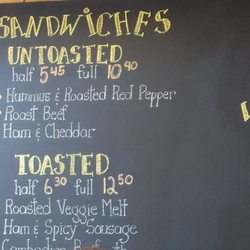 SANDWICHES
UNTOASTED
half 5.45 full 10.90
Hummus & Roasted Red Pepper
Roast Beef
Ham & Cheddar
TOASTED
half 6.30 full 12.50
Roasted Veggie Melt
Ham & Spicy Sausage
Cambodian